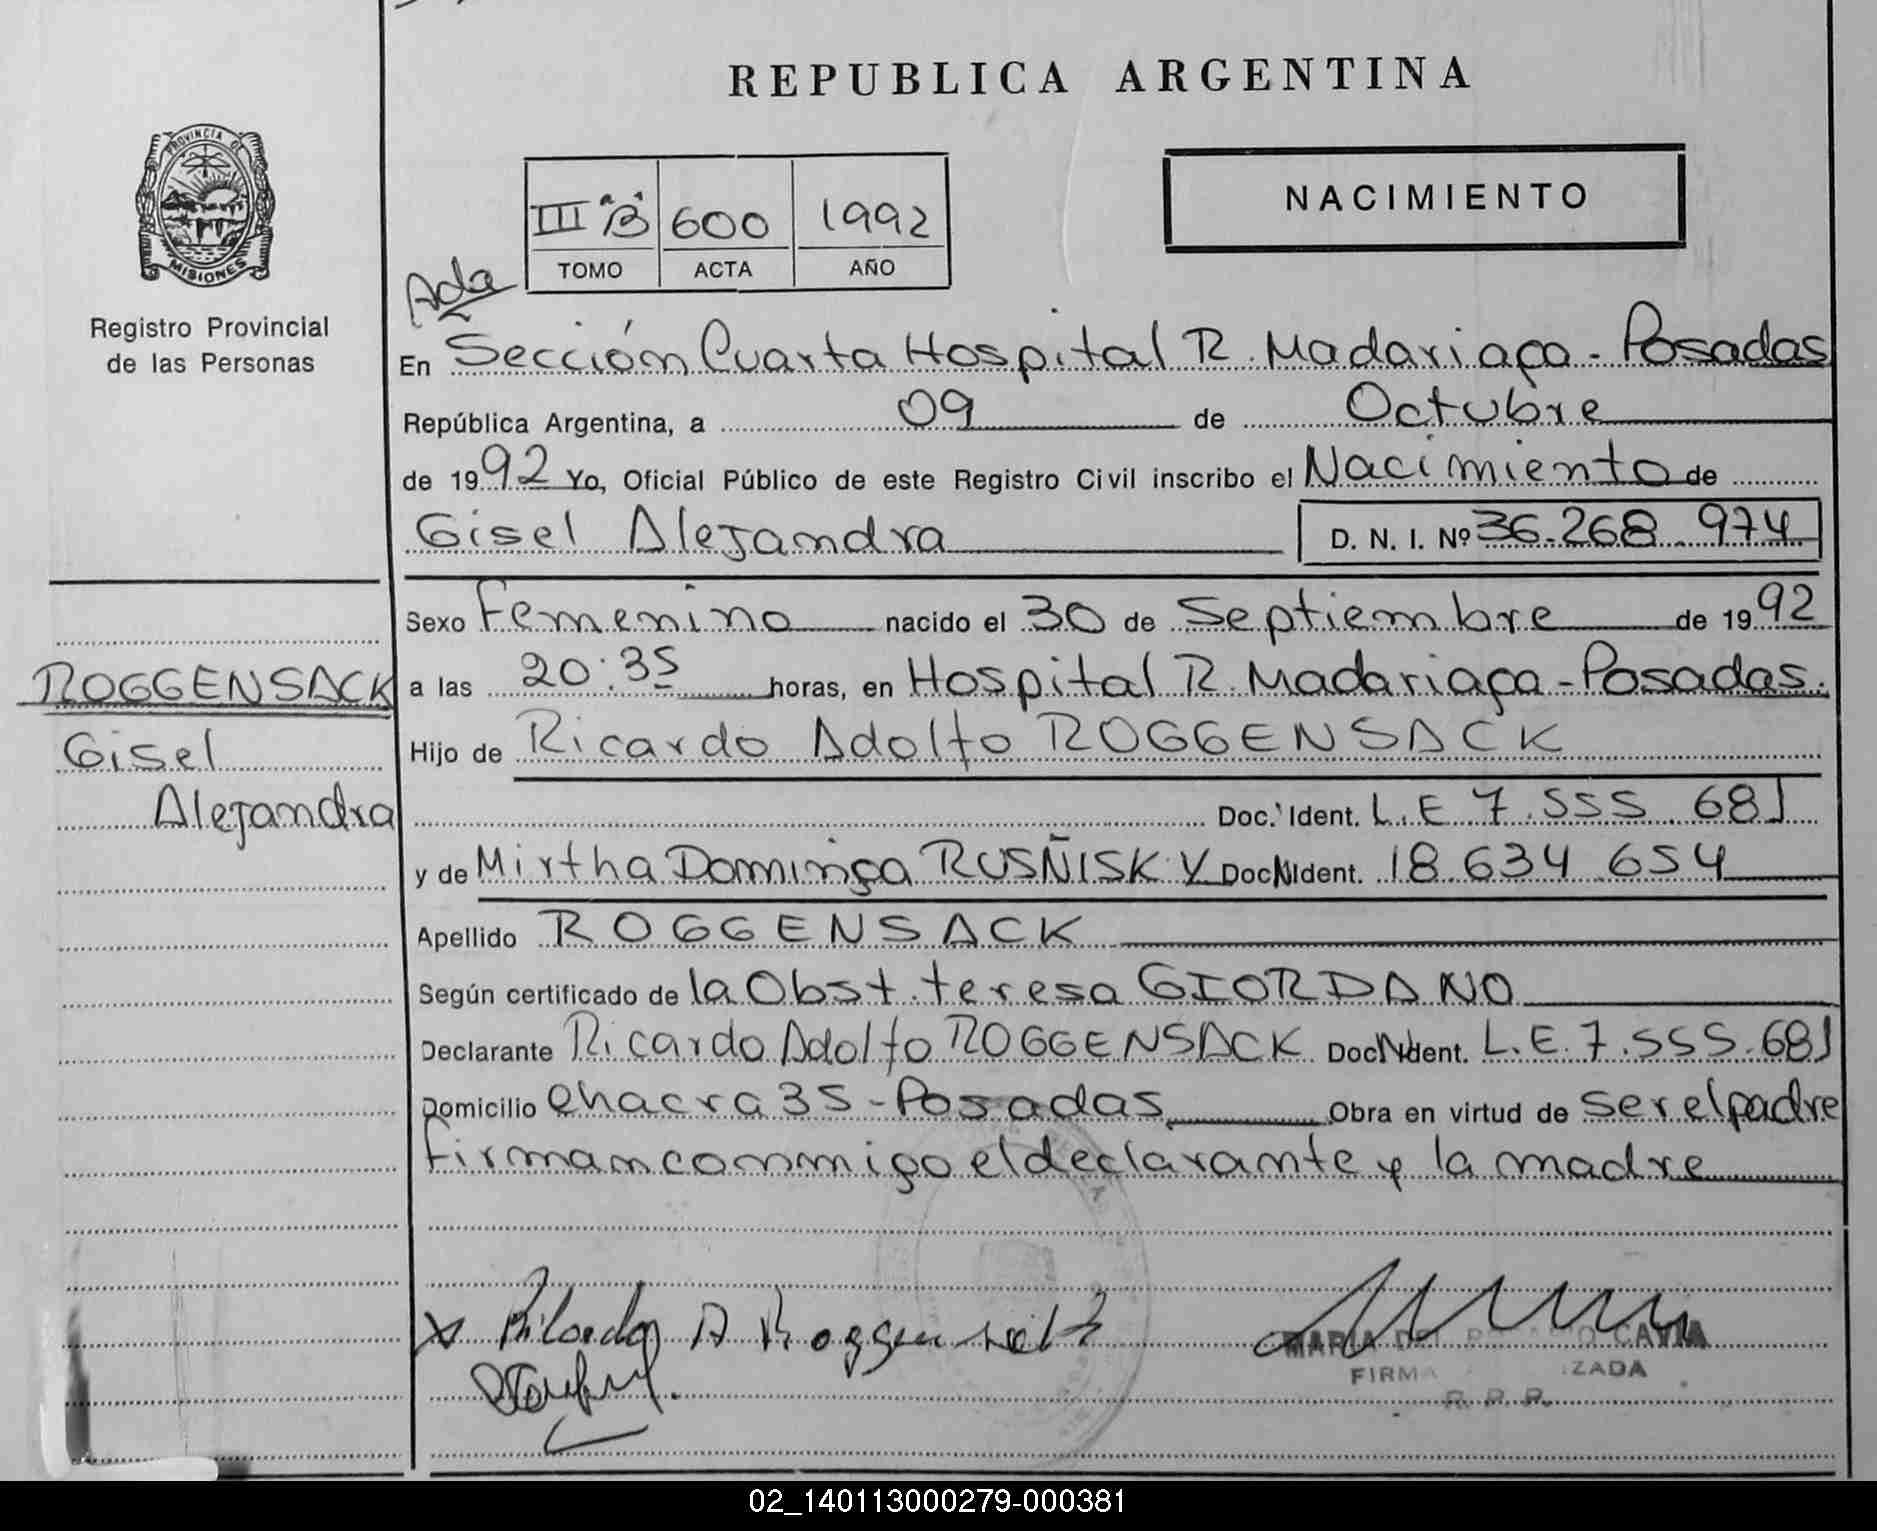 REPUBLICA ARGENTINA
PROVINCIA DE
MISIONES
Registro Provincial
de las Personas
III "B" 600 1992
TOMO ACTA AÑO
NACIMIENTO
Ada
En Sección Cuarta Hospital R. Madariaga - Posadas
República Argentina, a 09 de Octubre
de 1992 Yo, Oficial Público de este Registro Civil inscribo el Nacimiento de
Gisel Alejandra D. N. I. Nº 36.268.974
Sexo Femenino nacido el 30 de Septiembre de 1992
ROGGENSACK
Gisel
Alejandra
a las 20:35 horas, en Hospital R. Madariaga - Posadas.
Hijo de Ricardo Adolfo ROGGENSACK
Doc. Ident. L.E 7.555.681
y de Mirtha Dominga RUSÑISKY Doc.NIdent. 18.634.654
Apellido ROGGENSACK
Según certificado de la Obst. teresa GIORDANO
Declarante Ricardo Adolfo ROGGENSACK Doc.NIdent. L.E.7.555.681
Domicilio Chacra 35 - Posadas Obra en virtud de ser el padre
firman conmigo el declarante y la madre
MARIA DEL ROSARIO CAVIA
FIRMA IZADA
R. P. P.
02_140113000279-000381